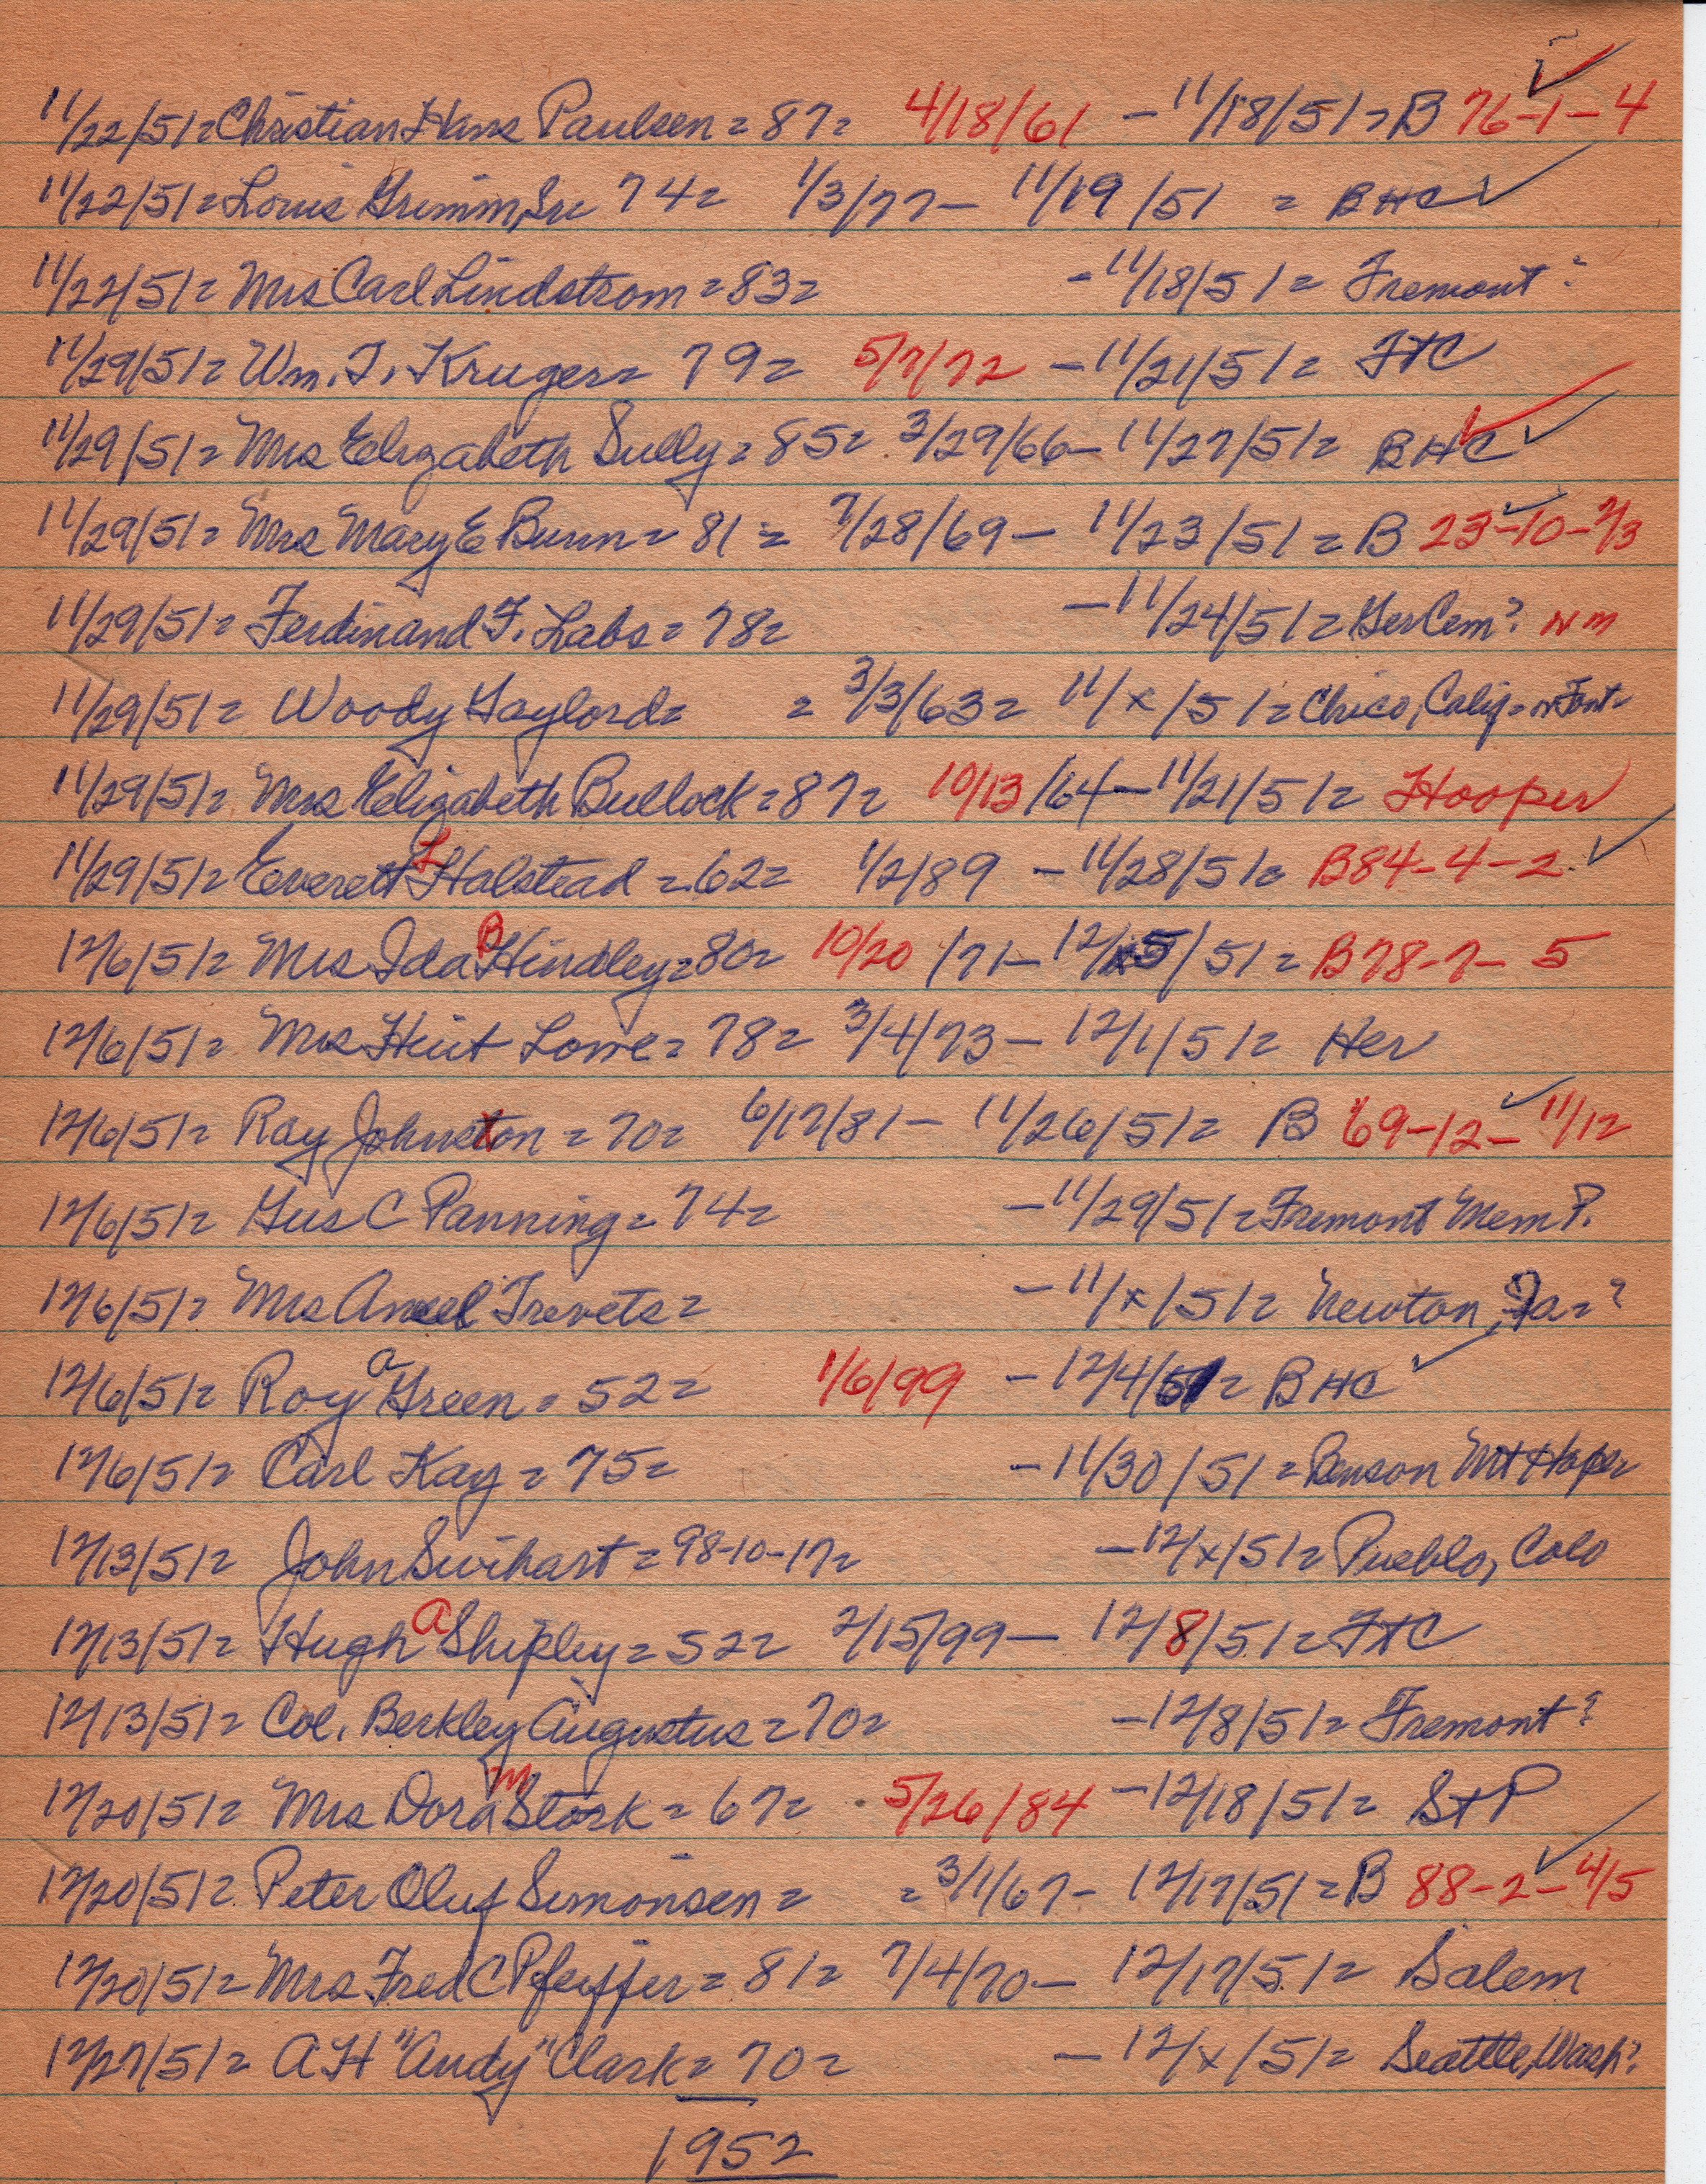 11/22/51= Christian Hans Paulsen = 87= 4/18/61 - 11/18/51 = B 76-1-4
11/22/51= Louis Grimm, Sr= 74= 1/3/77- 11/19/51 = BHC
11/22/51= Mrs Carl Lindstrom = 83= -11/18/51= Fremont?
11/29/51= Wm. F. Kruger= 79= 5/7/72 -11/21/51=
11/29/51= Mrs Elizabeth Sully= 85= 3/29/66- 11/27/51= BHC
11/29/51= Mrs Mary E Bunn= 81= 7/28/69- 11/23/51= B 23-10-2/3
11/29/51= Ferdinand F. Labs= 78= -11/24/51= Ger Cem? N M
11/29/51= Woody Gaylord= = 3/3/63= 11/x/51= Chico, Calif= or Font=
11/29/51= Mrs Elizabeth Bullock= 87= 10/13/64- 11/21/51= Hooper
11/29/51= Everett L Halstead = 62= 1/2/89 -11/28/51= B84-4-2
12/6/51= Mrs Ida B Hindley= 80= 10/20/71- 12/5/51= B78-7-5
12/6/51= Mrs Lowe= 78= 3/4/73- 12/1/51= Her
12/6/51= Ray Johnston = 70= 6/17/81- 11/26/51= B 69-12-11/12
12/6/51= Gus C Panning= 74= -11/29/51= Fremont Mem P.
12/6/51= Mrs Ansel Trevets= -11/x/51= Newton, Ia=?
12/6/51= Roy A Green= 52= 1/6/99 -12/4/51= BHC
12/6/51= Carl Kay= 75= -11/30/51= Benson Mt Hope=
12/13/51= John Swihart= 98-10-17= -12/x/51= Pueblo, Colo
12/13/51= Hugh A Shipley= 52= 2/15/99- 12/8/51=
12/13/51= Col. Berkley Augustus= 70= -12/8/51= Fremont?
12/20/51= Mrs Dora M Stork= 67= 5/26/84 -12/18/51= St P
12/20/51= Peter Oluf Simonsen= = 3/1/67- 12/17/51= B 88-2-4/5
12/20/51= Mrs Fred C Pfeiffer= 81= 7/4/70- 12/17/51= Salem
12/27/51= A H "Andy" Clark= 70= -12/x/51= Seattle, Wash?
1952